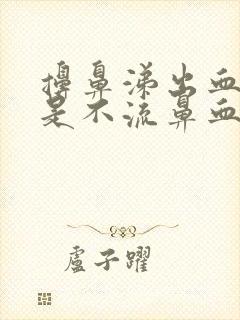 擤鼻涕出血
是不流鼻血
盧子躍